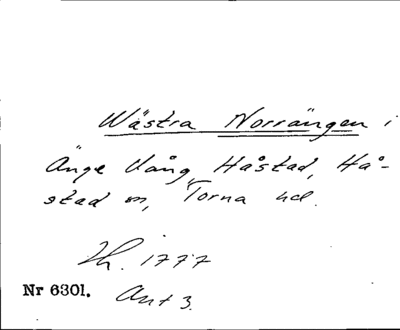 Wästra Norrängen i
Änge Vång, Håstad, Hå-
stad sn, Torna hd.
Lh. 1777
Nr 6301. Akt 3.